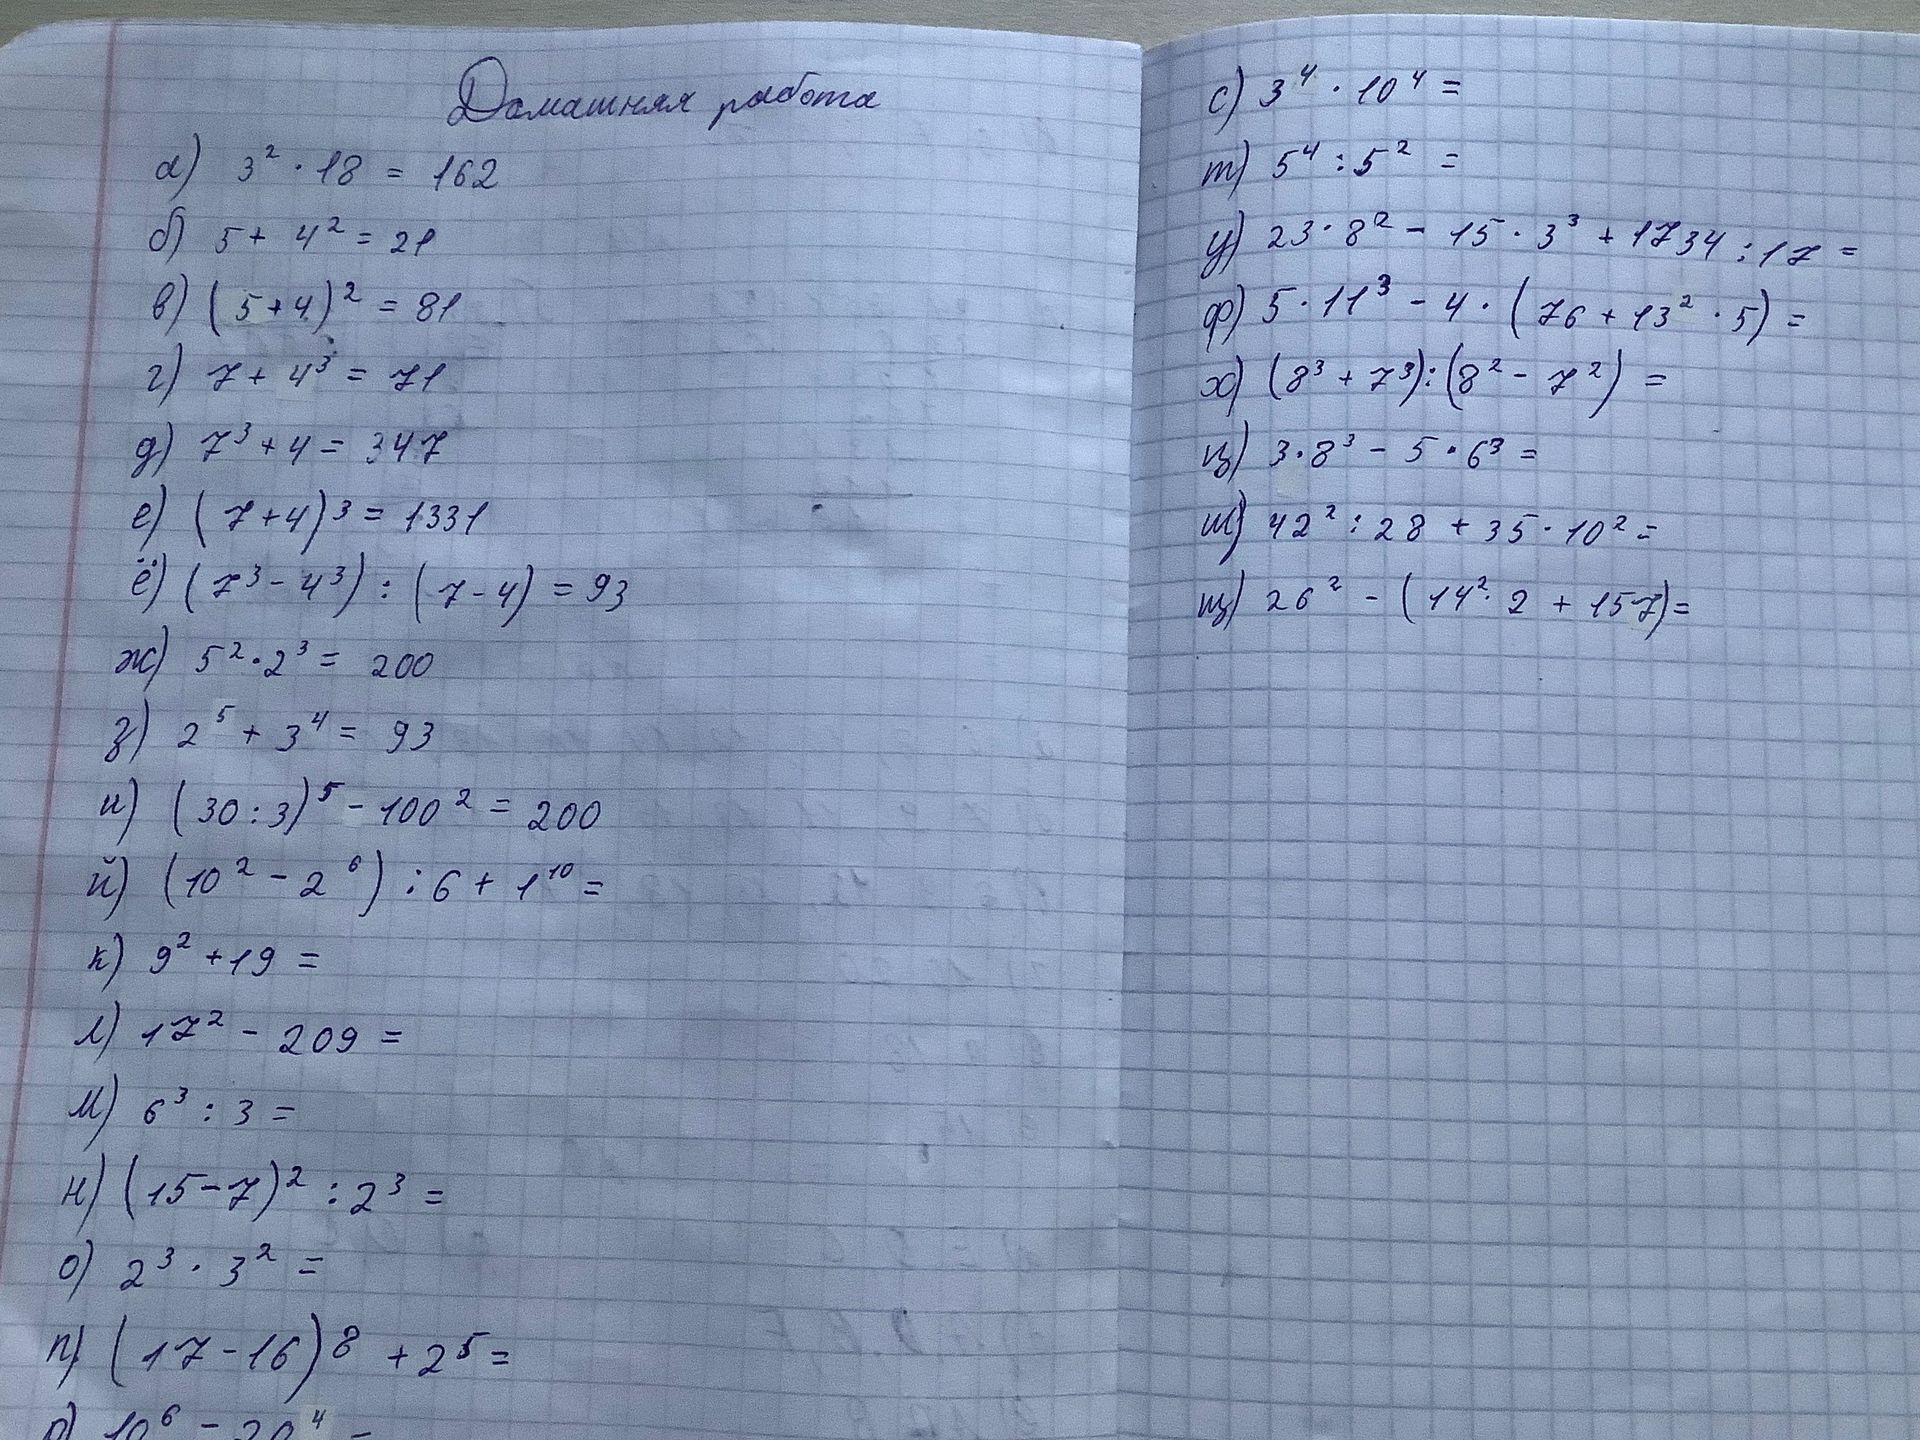 Домашняя работа
а) 3² · 18 = 162
б) 5 + 4² = 21
в) (5+4)² = 81
г) 7 + 4³ = 71
д) 7³ + 4 = 347
е) (7+4)³ = 1331
ё) (7³ - 4³) : (7 - 4) = 93
ж) 5² · 2³ = 200
з) 2⁵ + 3⁴ = 93
и) (30 : 3)⁵ - 100² = 200
й) (10² - 2⁶) : 6 + 1¹⁰ =
к) 9² + 19 =
л) 17² - 209 =
м) 6³ : 3 =
н) (15 - 7)² : 2³ =
о) 2³ · 3² =
п) (17 - 16)⁸ + 2⁵ =
р) 10⁶ - 20⁴ =
с) 3⁴ · 10⁴ =
т) 5⁴ : 5² =
у) 23 · 8² - 15 · 3³ + 1734 : 17 =
ф) 5 · 11³ - 4 · (76 + 13² · 5) =
х) (8³ + 7³) : (8² - 7²) =
ц) 3 · 8³ - 5 · 6³ =
ш) 42² : 28 + 35 · 10² =
щ) 26² - (14² · 2 + 157) =